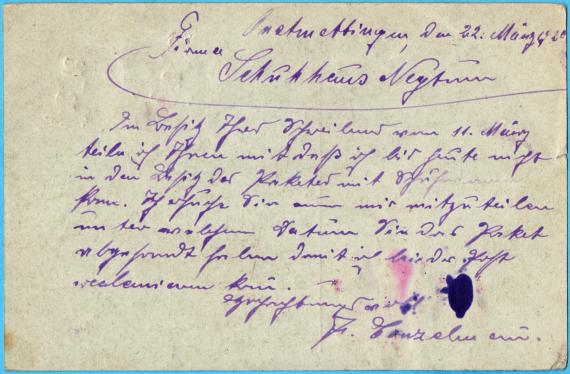 Onstmettingen, den 22. März
Firma
Schuhhaus Neptun
Im Besitz Ihres Schreibens vom 11. März
teile ich Ihnen mit daß ich bis heute nicht
in den Besitz des Paketes mit
kam. Ich ersuche Sie nun mir mitzuteilen
unter welchem Datum Sie das Paket
abgesandt haben damit ich bei der Post
reclamieren kann.
Hochachtungsvoll